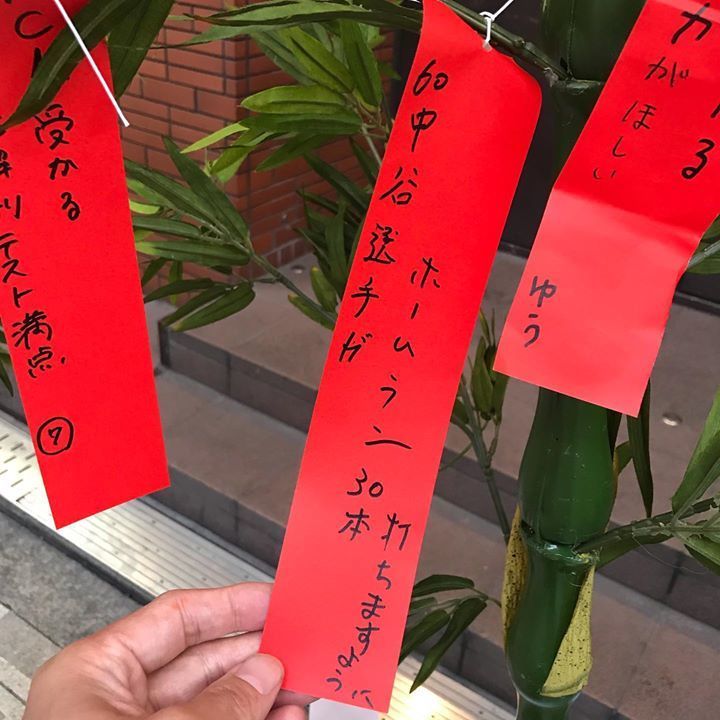 る
力がほしい
ゆう
60中谷選手が
ホームラン
30本
打ちますように
受かる
テスト満点 ⑦